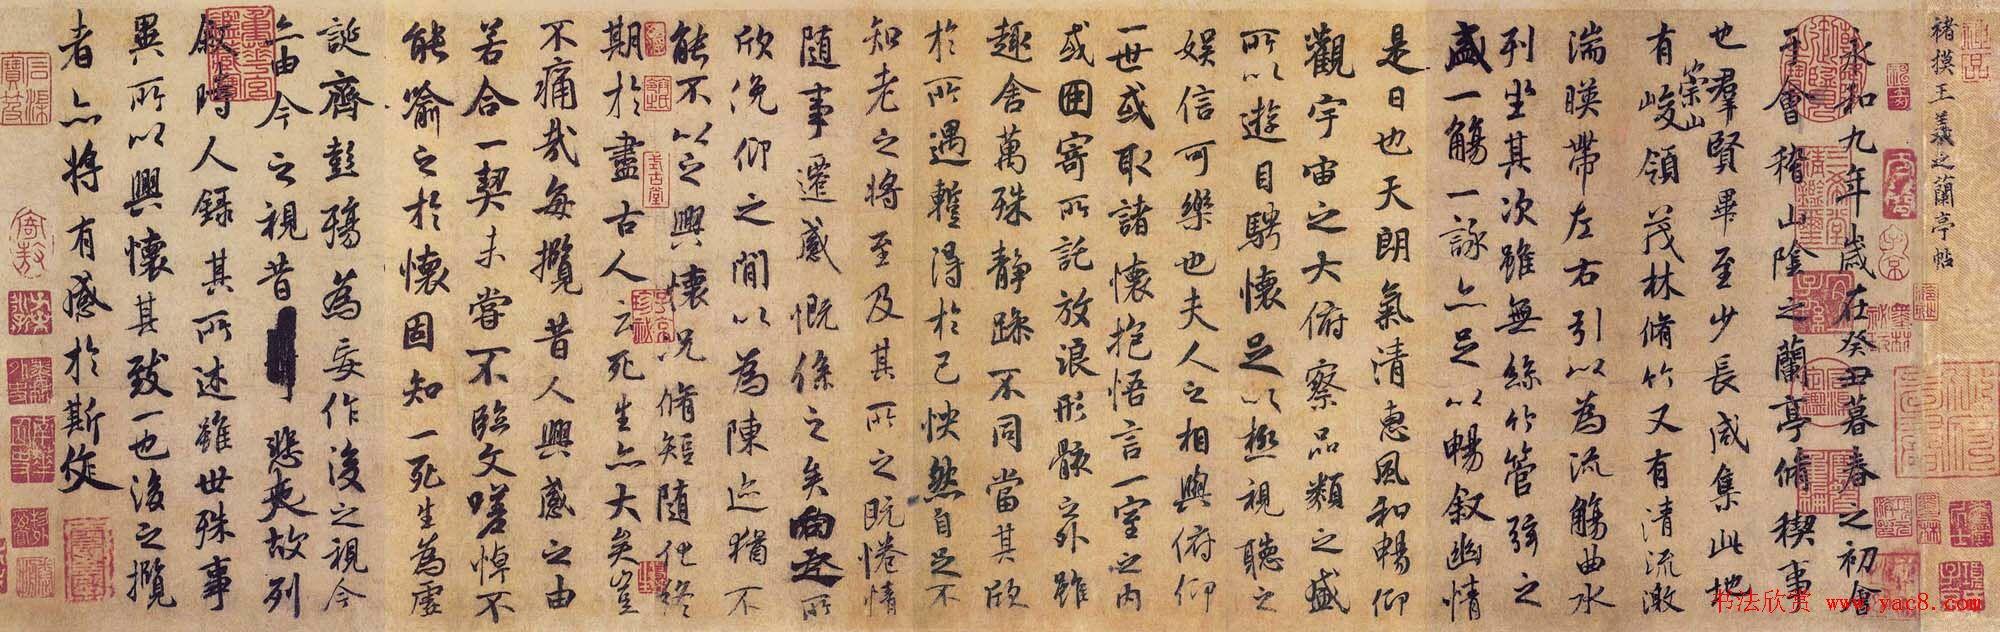 褚摸王羲之蘭亭帖
永和九年歲在癸丑暮春之初會
于會稽山陰之蘭亭脩禊事
也羣賢畢至少長咸集此地
有崇山峻領茂林脩竹又有清流激
湍暎帶左右引以為流觴曲水
列坐其次雖無絲竹管弦之
盛一觴一詠亦足以暢叙幽情
是日也天朗氣清惠風和暢仰
觀宇宙之大俯察品類之盛
所以遊目騁懷足以極視聽之
娛信可樂也夫人之相與俯仰
一世或取諸懷抱悟言一室之內
或因寄所託放浪形骸之外雖
趣舍萬殊靜躁不同當其欣
於所遇蹔得於己怏然自足不
知老之將至及其所之既惓情
隨事遷感慨係之矣向之所
欣俛仰之閒以為陳迹猶不
能不以之興懷況脩短隨化終
期於盡古人云死生亦大矣豈
不痛哉每攬昔人興感之由
若合一契未嘗不臨文嗟悼不
能喻之於懷固知一死生為虛
誕齊彭殤為妄作後之視今
亦由今之視昔悲夫故列
叙時人錄其所述雖世殊事
異所以興懷其致一也後之攬
者亦將有感於斯文
书法欣赏 www.yac8.com